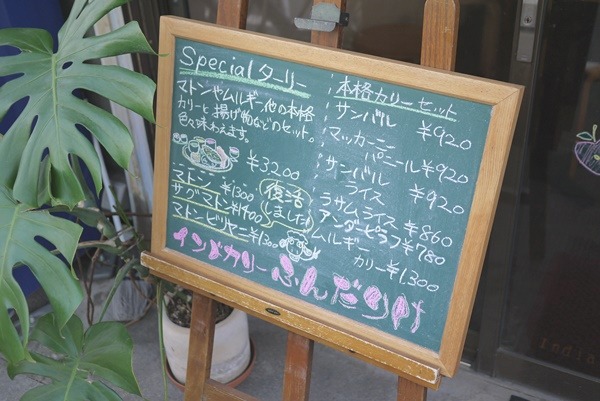 Specialターリー
マトンやムルギー他の本格
カリーと揚げ物などのセット。
色々味わえます。
¥3,200
マトン ¥1300
サグマトン ¥1400
マトンビリヤニ ¥1300
復活
しました!
本格カリーセット
サンバル ¥920
マッカーニー
パニール ¥920
サンバル
ライス ¥920
ラサムライス ¥860
アンダーピラフ ¥780
ムルギー
カリー ¥1,300
インドカリーふんだりけ